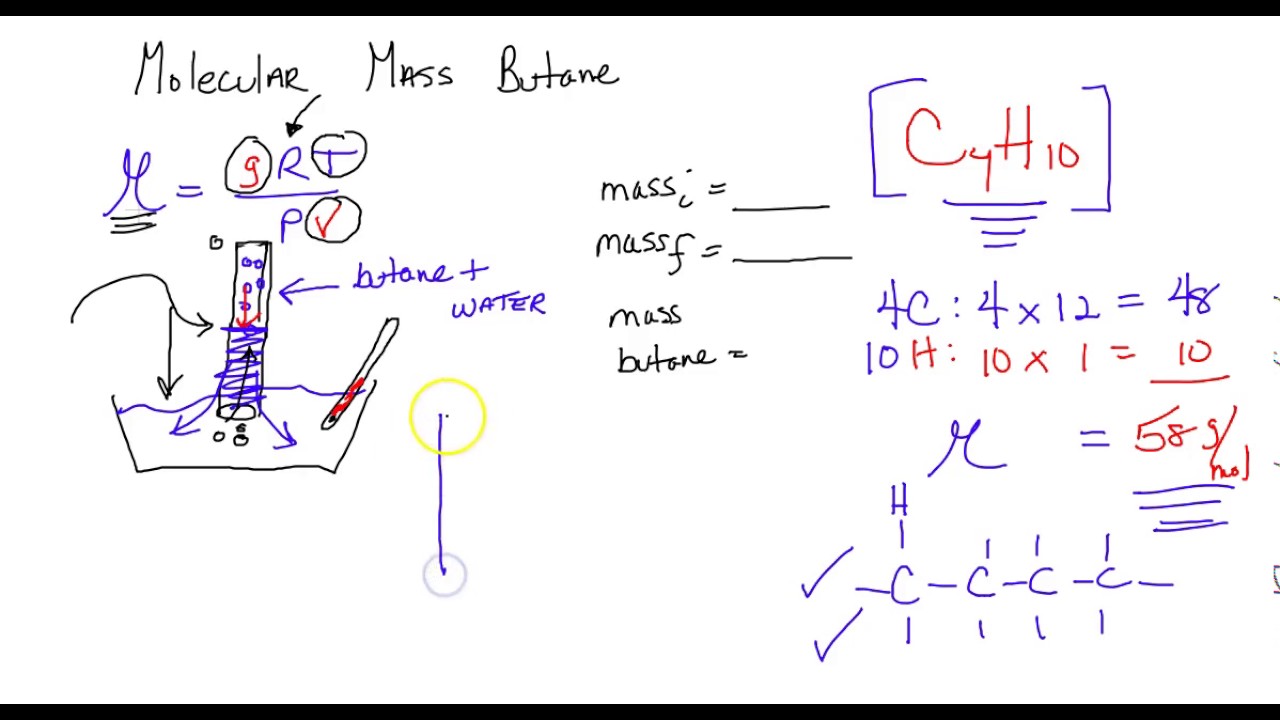 Molecular Mass Butane
M = gRT
PV
butane +
WATER
mass i = ____
mass f = ____
mass
butane =
[C4H10]
4C: 4 x 12 = 48
10H: 10 x 1 = 10
M = 58 g/mol
H
-C-C-C-C-